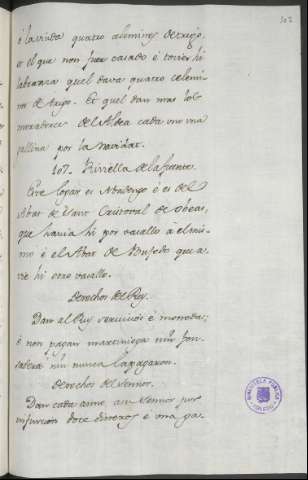 102
è la viuda quatro celemines de trigo,
è el que non fuer casado è toviere hi
labranza quel dava quatro celemi
nes de trigo. Et quel dan mas los
moradores de el Aldea cada uno una
gallina por la navidat.
107. Tiniella de la fuente.
Este logar es Abadengo è es del
Abat de Sant Cristoval de Obeas,
que havia hi por vasallo à el mis-
mo è el Abat de Bujedo que a-
vie hi otro vasallo.
Derechos del Rey.
Dan al Rey servicios è moneda;
è non pagan martiniega nin fon-
sadera nin nunca la pagaron.
Derechos del Sennor.
Dan cada anno a su Sennor por
infurcion doce dineros è una ga-
BIBLIOTECA PUBLICA
TOLEDO